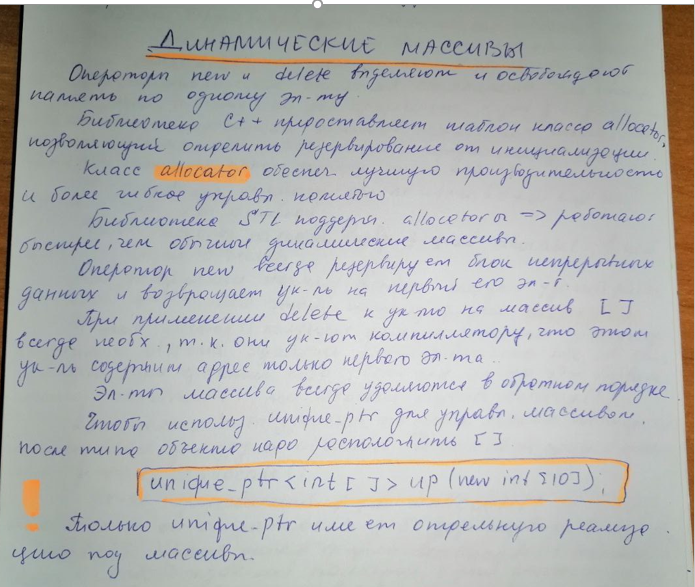 ДИНАМИЧЕСКИЕ МАССИВЫ
Операторы new и delete выделяют и освобождают
память по одному эл-ту.
Библиотека C++ предоставляет шаблон класса allocator,
позволяющий отделить резервирование от инициализации.
Класс allocator обеспеч. лучшую производительность
и более гибкое управл. памятью
Библиотека STL поддерж. allocatorы => работают
быстрее, чем обычные динамические массивы.
Оператор new всегда резервирует блок непрерывных
данных и возвращает ук-ль на первый его эл-т.
При применении delete к ук-лю на массив [ ]
всегда необх., т.к. они ук-ют компилятору, что этот
ук-ль содержит адрес только первого эл-та.
Эл-ты массива всегда удаляются в обратном порядке.
Чтобы использ. unique_ptr для управл. массивом,
после типа объекта надо расположить [ ].
unique_ptr<int[ ]> up (new int[10]);
! Только unique_ptr имеет отдельную реализа
цию под массивы.